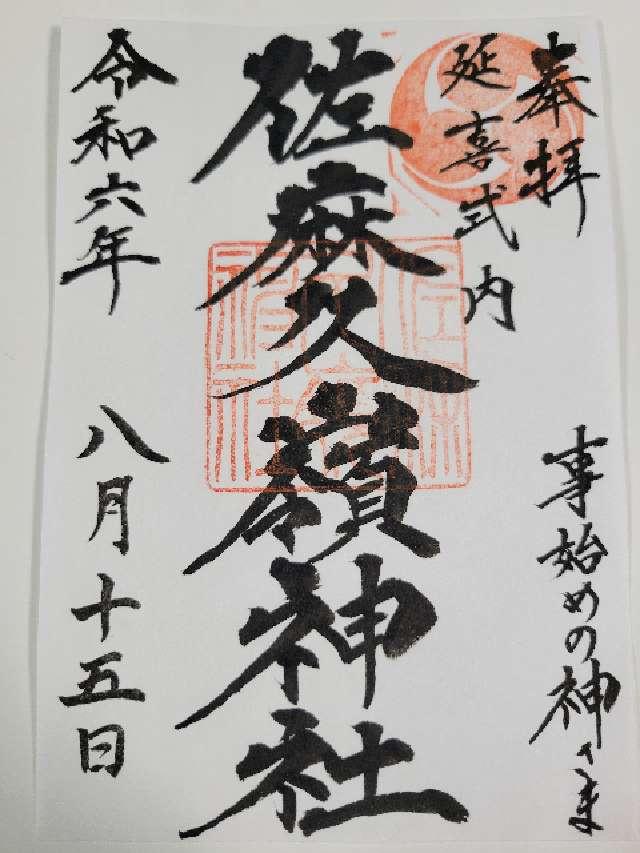 奉拝
事始めの神さま
延喜式内
佐麻久嶺神社
令和六年 八月十五日